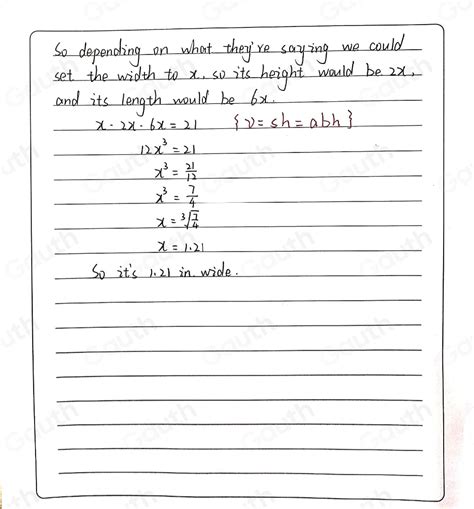 So depending on what they're saying we could
set the width to x, so its height would be 2x,
and its length would be 6x.
x · 2x · 6x = 21 {V = sh = abh}
12x³ = 21
x³ = 21/12
x³ = 7/4
x = ³√7/4
x = 1.21
So it's 1.21 in wide.
Gauth